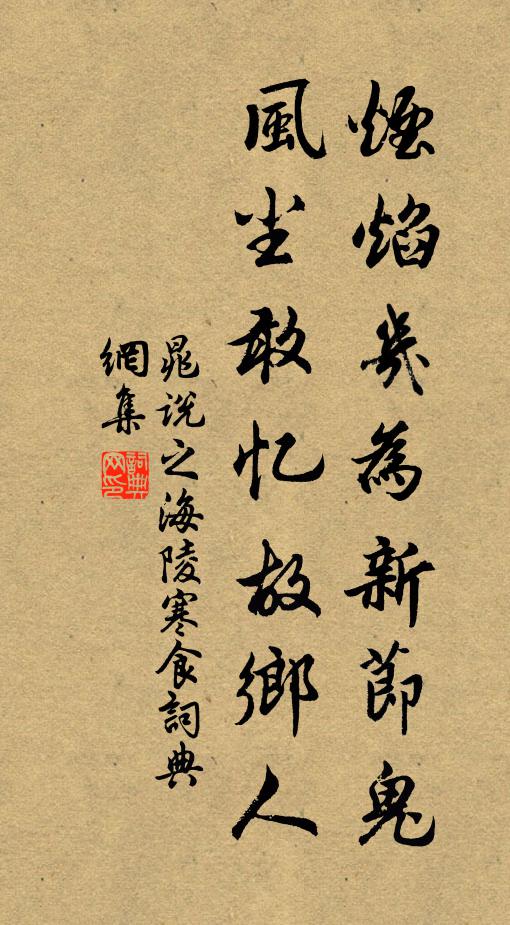 煙焰幾為新節鬼
風尘敢忆故鄉人
晁說之海陵寒食詞典
網集
詞典網印